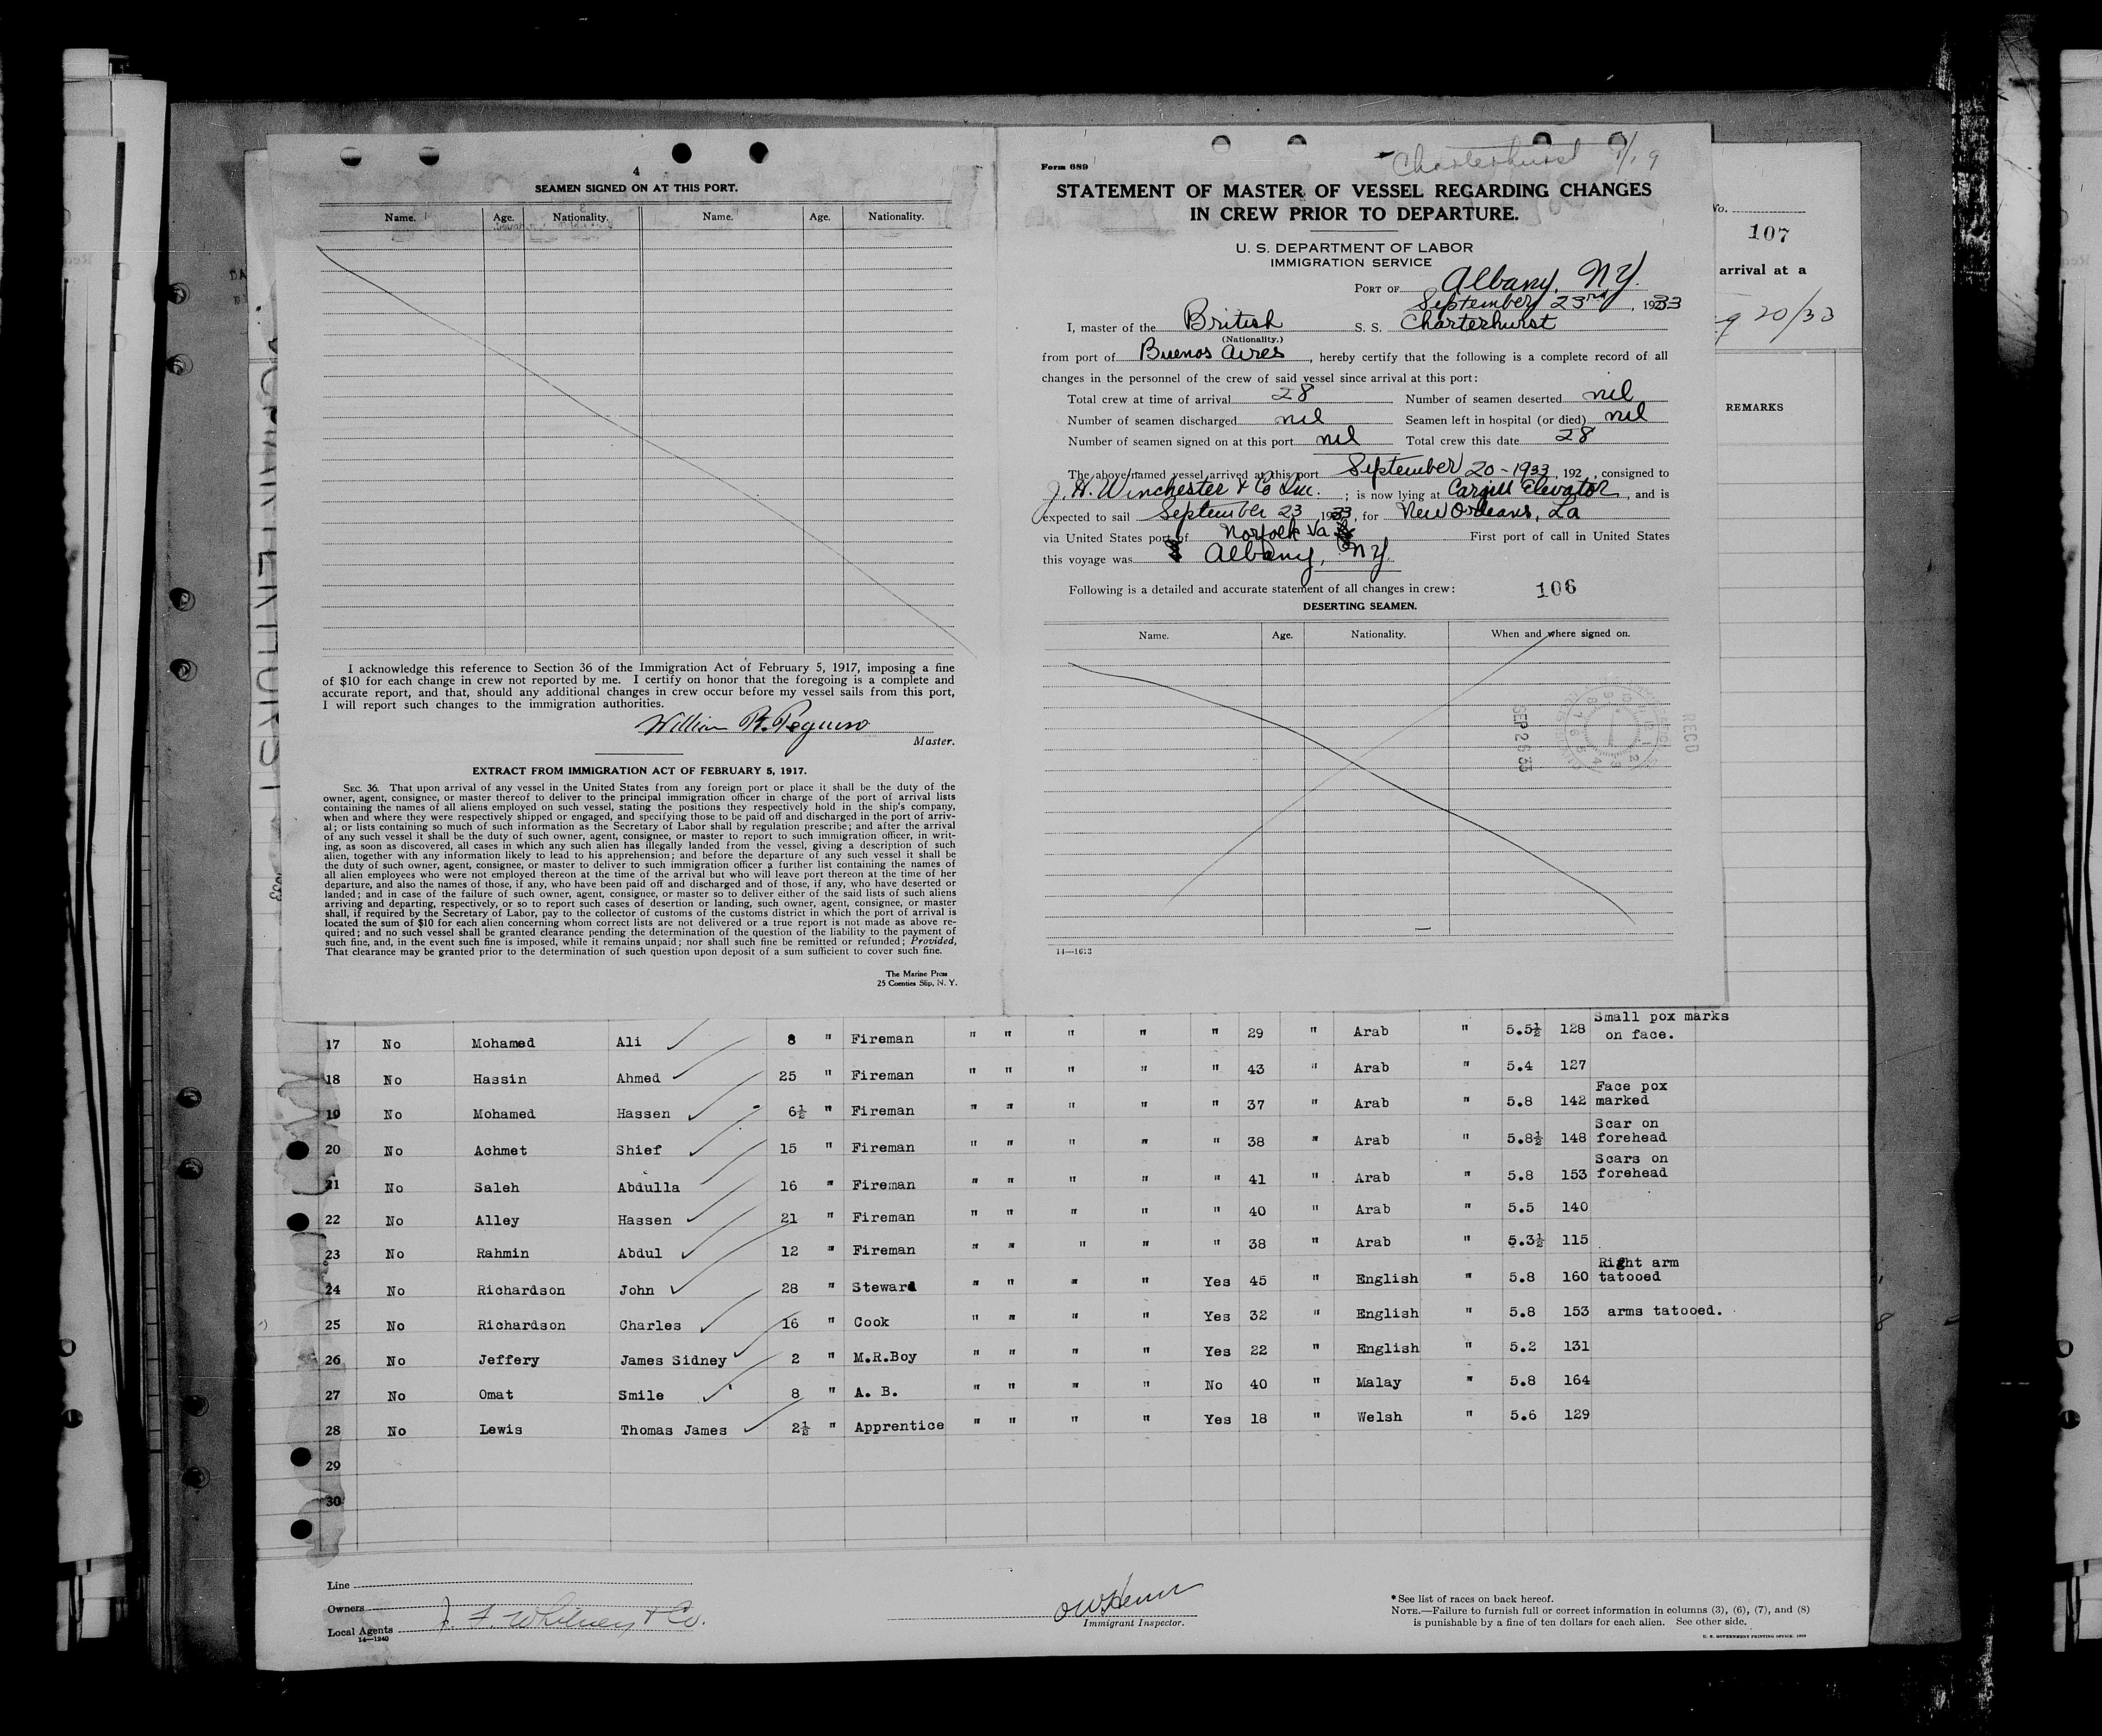 4
SEAMEN SIGNED ON AT THIS PORT.
Name. Age. Nationality. Name. Age. Nationality.
I acknowledge this reference to Section 36 of the Immigration Act of February 5, 1917, imposing a fine
of $10 for each change in crew not reported by me. I certify on honor that the foregoing is a complete and
accurate report, and that, should any additional changes in crew occur before my vessel sails from this port,
I will report such changes to the immigration authorities.
William
Master.
EXTRACT FROM IMMIGRATION ACT OF FEBRUARY 5, 1917.
SEC. 36. That upon arrival of any vessel in the United States from any foreign port or place it shall be the duty of the
owner, agent, consignee, or master thereof to deliver to the principal immigration officer in charge of the port of arrival lists
containing the names of all aliens employed on such vessel, stating the positions they respectively hold in the ship's company,
when and where they were respectively shipped or engaged, and specifying those to be paid off and discharged in the port of arriv-
al; or lists containing so much of such information as the Secretary of Labor shall by regulation prescribe; and after the arrival
of any such vessel it shall be the duty of such owner, agent, consignee, or master to report to such immigration officer, in writ-
ing, as soon as discovered, all cases in which any such alien has illegally landed from the vessel, giving a description of such
alien, together with any information likely to lead to his apprehension; and before the departure of any such vessel it shall be
the duty of such owner, agent, consignee, or master to deliver to such immigration officer a further list containing the names of
all alien employees who were not employed thereon at the time of the arrival but who will leave port thereon at the time of her
departure, and also the names of those, if any, who have been paid off and discharged and of those, if any, who have deserted or
landed; and in case of the failure of such owner, agent, consignee, or master so to deliver either of the said lists of such aliens
arriving and departing, respectively, or so to report such cases of desertion or landing, such owner, agent, consignee, or master
shall, if required by the Secretary of Labor, pay to the collector of customs of the customs district in which the port of arrival is
located the sum of $10 for each alien concerning whom correct lists are not delivered or a true report is not made as above re-
quired; and no such vessel shall be granted clearance pending the determination of the question of the liability to the payment of
such fine, and, in the event such fine is imposed, while it remains unpaid; nor shall such fine be remitted or refunded; Provided,
That clearance may be granted prior to the determination of such question upon deposit of a sum sufficient to cover such fine.
The Marine Press
25 Coenties Slip, N. Y.
Charterhurst
Form 689
STATEMENT OF MASTER OF VESSEL REGARDING CHANGES
IN CREW PRIOR TO DEPARTURE.
U. S. DEPARTMENT OF LABOR
IMMIGRATION SERVICE
PORT OF Albany, N.Y.
September 23rd, 1933
I, master of the British S. S. Charterhurst
(Nationality.)
from port of Buenos Aires, hereby certify that the following is a complete record of all
changes in the personnel of the crew of said vessel since arrival at this port:
Total crew at time of arrival 28 Number of seamen deserted nil
Number of seamen discharged nil Seamen left in hospital (or died) nil
Number of seamen signed on at this port nil Total crew this date 28
The above named vessel arrived at this port September 20-1933, 192 , consigned to
J. H. Winchester & Co Inc. ; is now lying at Cargill Elevator, and is
expected to sail September 23 1933, for New Orleans, La
via United States port of Norfolk Va First port of call in United States
this voyage was Albany, N.Y.
Following is a detailed and accurate statement of all changes in crew: 106
DESERTING SEAMEN.
Name. Age. Nationality. When and where signed on.
SEP 26 33
REC'D
14—1613
No.
107
arrival at a
20/33
REMARKS
17 No Mohamed Ali 8 " Fireman " " " " " 29 " Arab " 5.5½ 128 Small pox marks
on face.
18 No Hassin Ahmed 25 " Fireman " " " " " 43 " Arab " 5.4 127
19 No Mohamed Hassen 6½ " Fireman " " " " " 37 " Arab " 5.8 142 Face pox
marked
20 No Achmet Shief 15 " Fireman " " " " " 38 " Arab " 5.8½ 148 Scar on
forehead
21 No Saleh Abdulla 16 " Fireman " " " " " 41 " Arab " 5.8 153 Scars on
forehead
22 No Alley Hassen 21 " Fireman " " " " " 40 " Arab " 5.5 140
23 No Rahmin Abdul 12 " Fireman " " " " " 38 " Arab " 5.3½ 115
24 No Richardson John 28 " Steward " " " " Yes 45 " English " 5.8 160 Right arm
tatooed
25 No Richardson Charles 16 " Cook " " " " Yes 32 " English " 5.8 153 arms tatooed.
26 No Jeffery James Sidney 2 " M.R.Boy " " " " Yes 22 " English " 5.2 131
27 No Omat Smile 8 " A. B. " " " " No 40 " Malay " 5.8 164
28 No Lewis Thomas James 2½ " Apprentice " " " " Yes 18 " Welsh " 5.6 129
29
30
Line
Owners
Local Agents J. F. Whitney & Co.
14—1240
Immigrant Inspector.
* See list of races on back hereof.
NOTE.—Failure to furnish full or correct information in columns (3), (6), (7), and (8)
is punishable by a fine of ten dollars for each alien. See other side.
U. S. GOVERNMENT PRINTING OFFICE: 1929